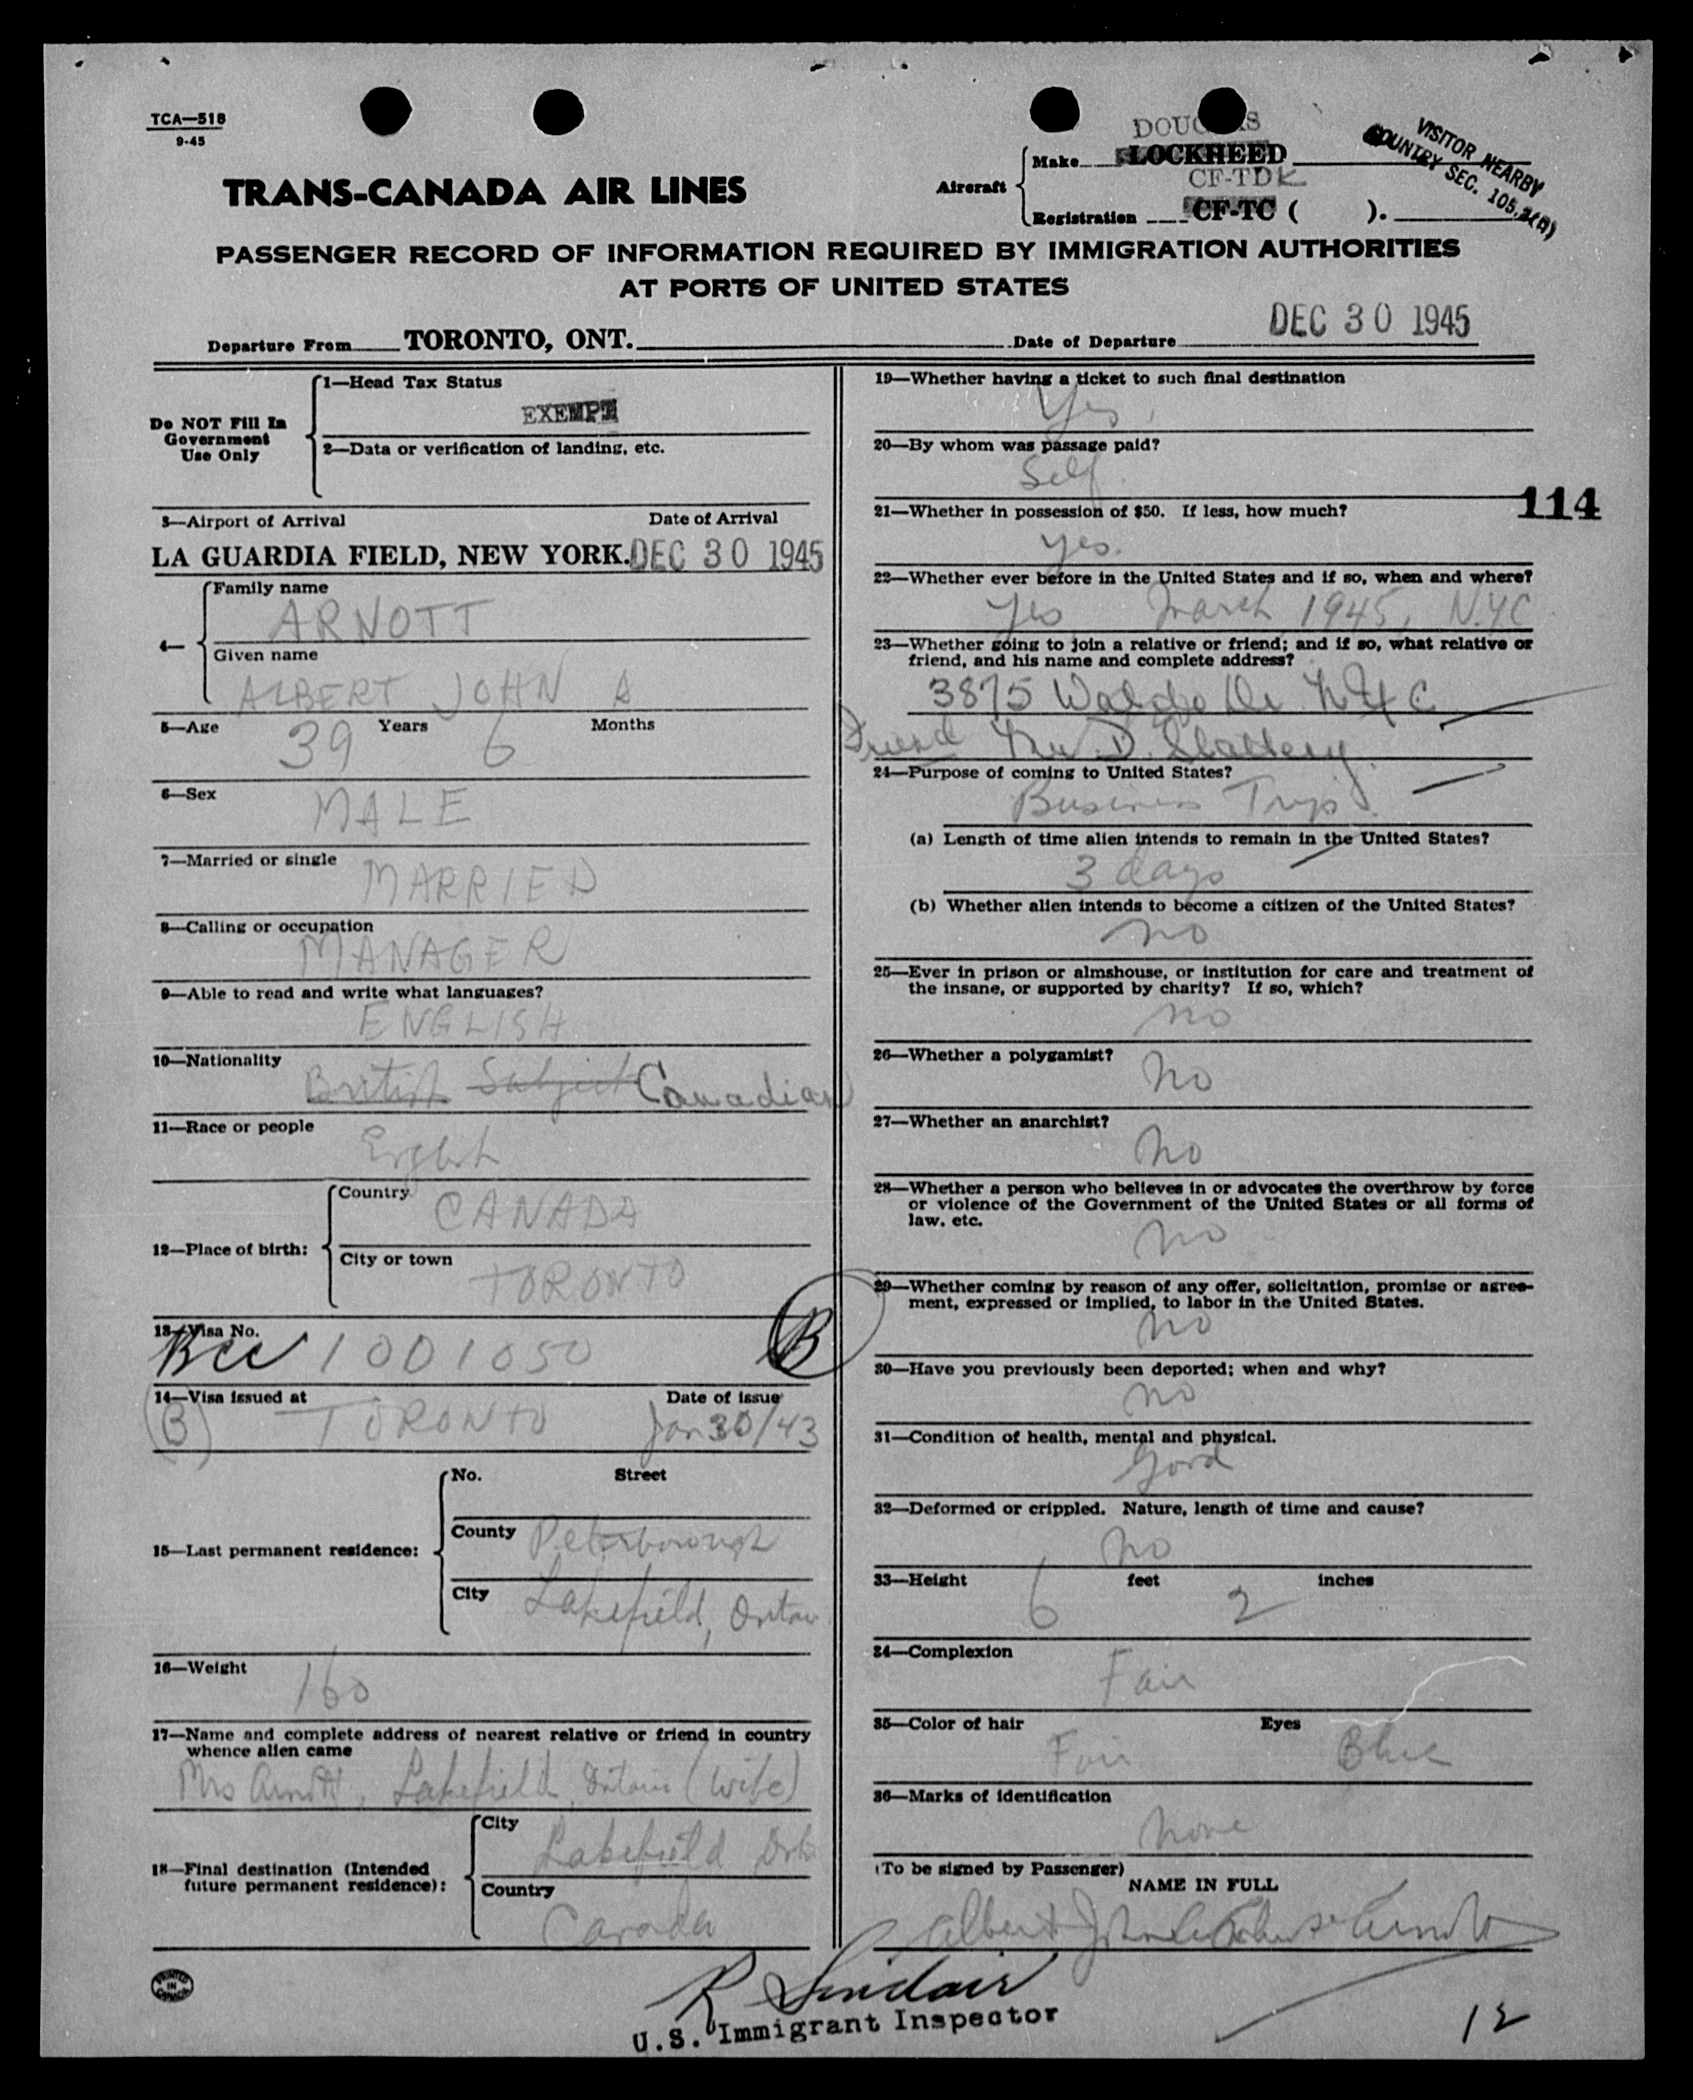 TCA—518
9-45
DOUGLAS
Aircraft
Make LOCKHEED
CF-TDK
Registration CF-TC ( ).
VISITOR NEARBY
COUNTRY SEC. 105.3(B)
TRANS-CANADA AIR LINES
PASSENGER RECORD OF INFORMATION REQUIRED BY IMMIGRATION AUTHORITIES
AT PORTS OF UNITED STATES
Departure From TORONTO, ONT. Date of Departure DEC 30 1945
Do NOT Fill In
Government
Use Only
1—Head Tax Status
EXEMPT
2—Data or verification of landing, etc.
3—Airport of Arrival Date of Arrival
LA GUARDIA FIELD, NEW YORK. DEC 30 1945
4—
Family name
ARNOTT
Given name
ALBERT JOHN A
5—Age 39 Years 6 Months
6—Sex
MALE
7—Married or single
MARRIED
8—Calling or occupation
MANAGER
9—Able to read and write what languages?
ENGLISH
10—Nationality
British Subject Canadian
11—Race or people
English
12—Place of birth:
Country
CANADA
City or town
TORONTO
13—Visa No.
BCC 1001050 B
14—Visa issued at Date of issue
(B) TORONTO Jan 30/43
15—Last permanent residence:
No. Street
County Peterborough
City Lakefield, Ontario
16—Weight
160
17—Name and complete address of nearest relative or friend in country
whence alien came
Mrs Arnott, Lakefield, Ontario (Wife)
18—Final destination (Intended
future permanent residence):
City
Lakefield Ont
Country
Canada
PRINTED
IN
CANADA
19—Whether having a ticket to such final destination
Yes
20—By whom was passage paid?
Self.
21—Whether in possession of $50. If less, how much?
114
yes.
22—Whether ever before in the United States and if so, when and where?
Yes March 1945, N.Y.C
23—Whether going to join a relative or friend; and if so, what relative or
friend, and his name and complete address?
3875 Waldo N Y C
Friend D. Slattery
24—Purpose of coming to United States?
Business Trip.
(a) Length of time alien intends to remain in the United States?
3 days
(b) Whether alien intends to become a citizen of the United States?
no
25—Ever in prison or almshouse, or institution for care and treatment of
the insane, or supported by charity? If so, which?
no
26—Whether a polygamist?
No
27—Whether an anarchist?
No
28—Whether a person who believes in or advocates the overthrow by force
or violence of the Government of the United States or all forms of
law, etc.
No
29—Whether coming by reason of any offer, solicitation, promise or agree-
ment, expressed or implied, to labor in the United States.
no
30—Have you previously been deported; when and why?
no
31—Condition of health, mental and physical.
Good
32—Deformed or crippled. Nature, length of time and cause?
no
33—Height 6 feet 2 inches
34—Complexion
Fair
35—Color of hair Eyes
Fair Blue
36—Marks of identification
None
(To be signed by Passenger)
NAME IN FULL
Albert John Arnott
R Sinclair
U.S. Immigrant Inspector
12